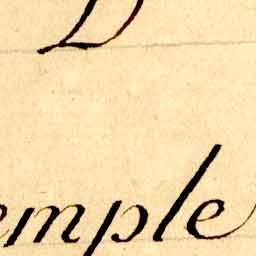 D
emple